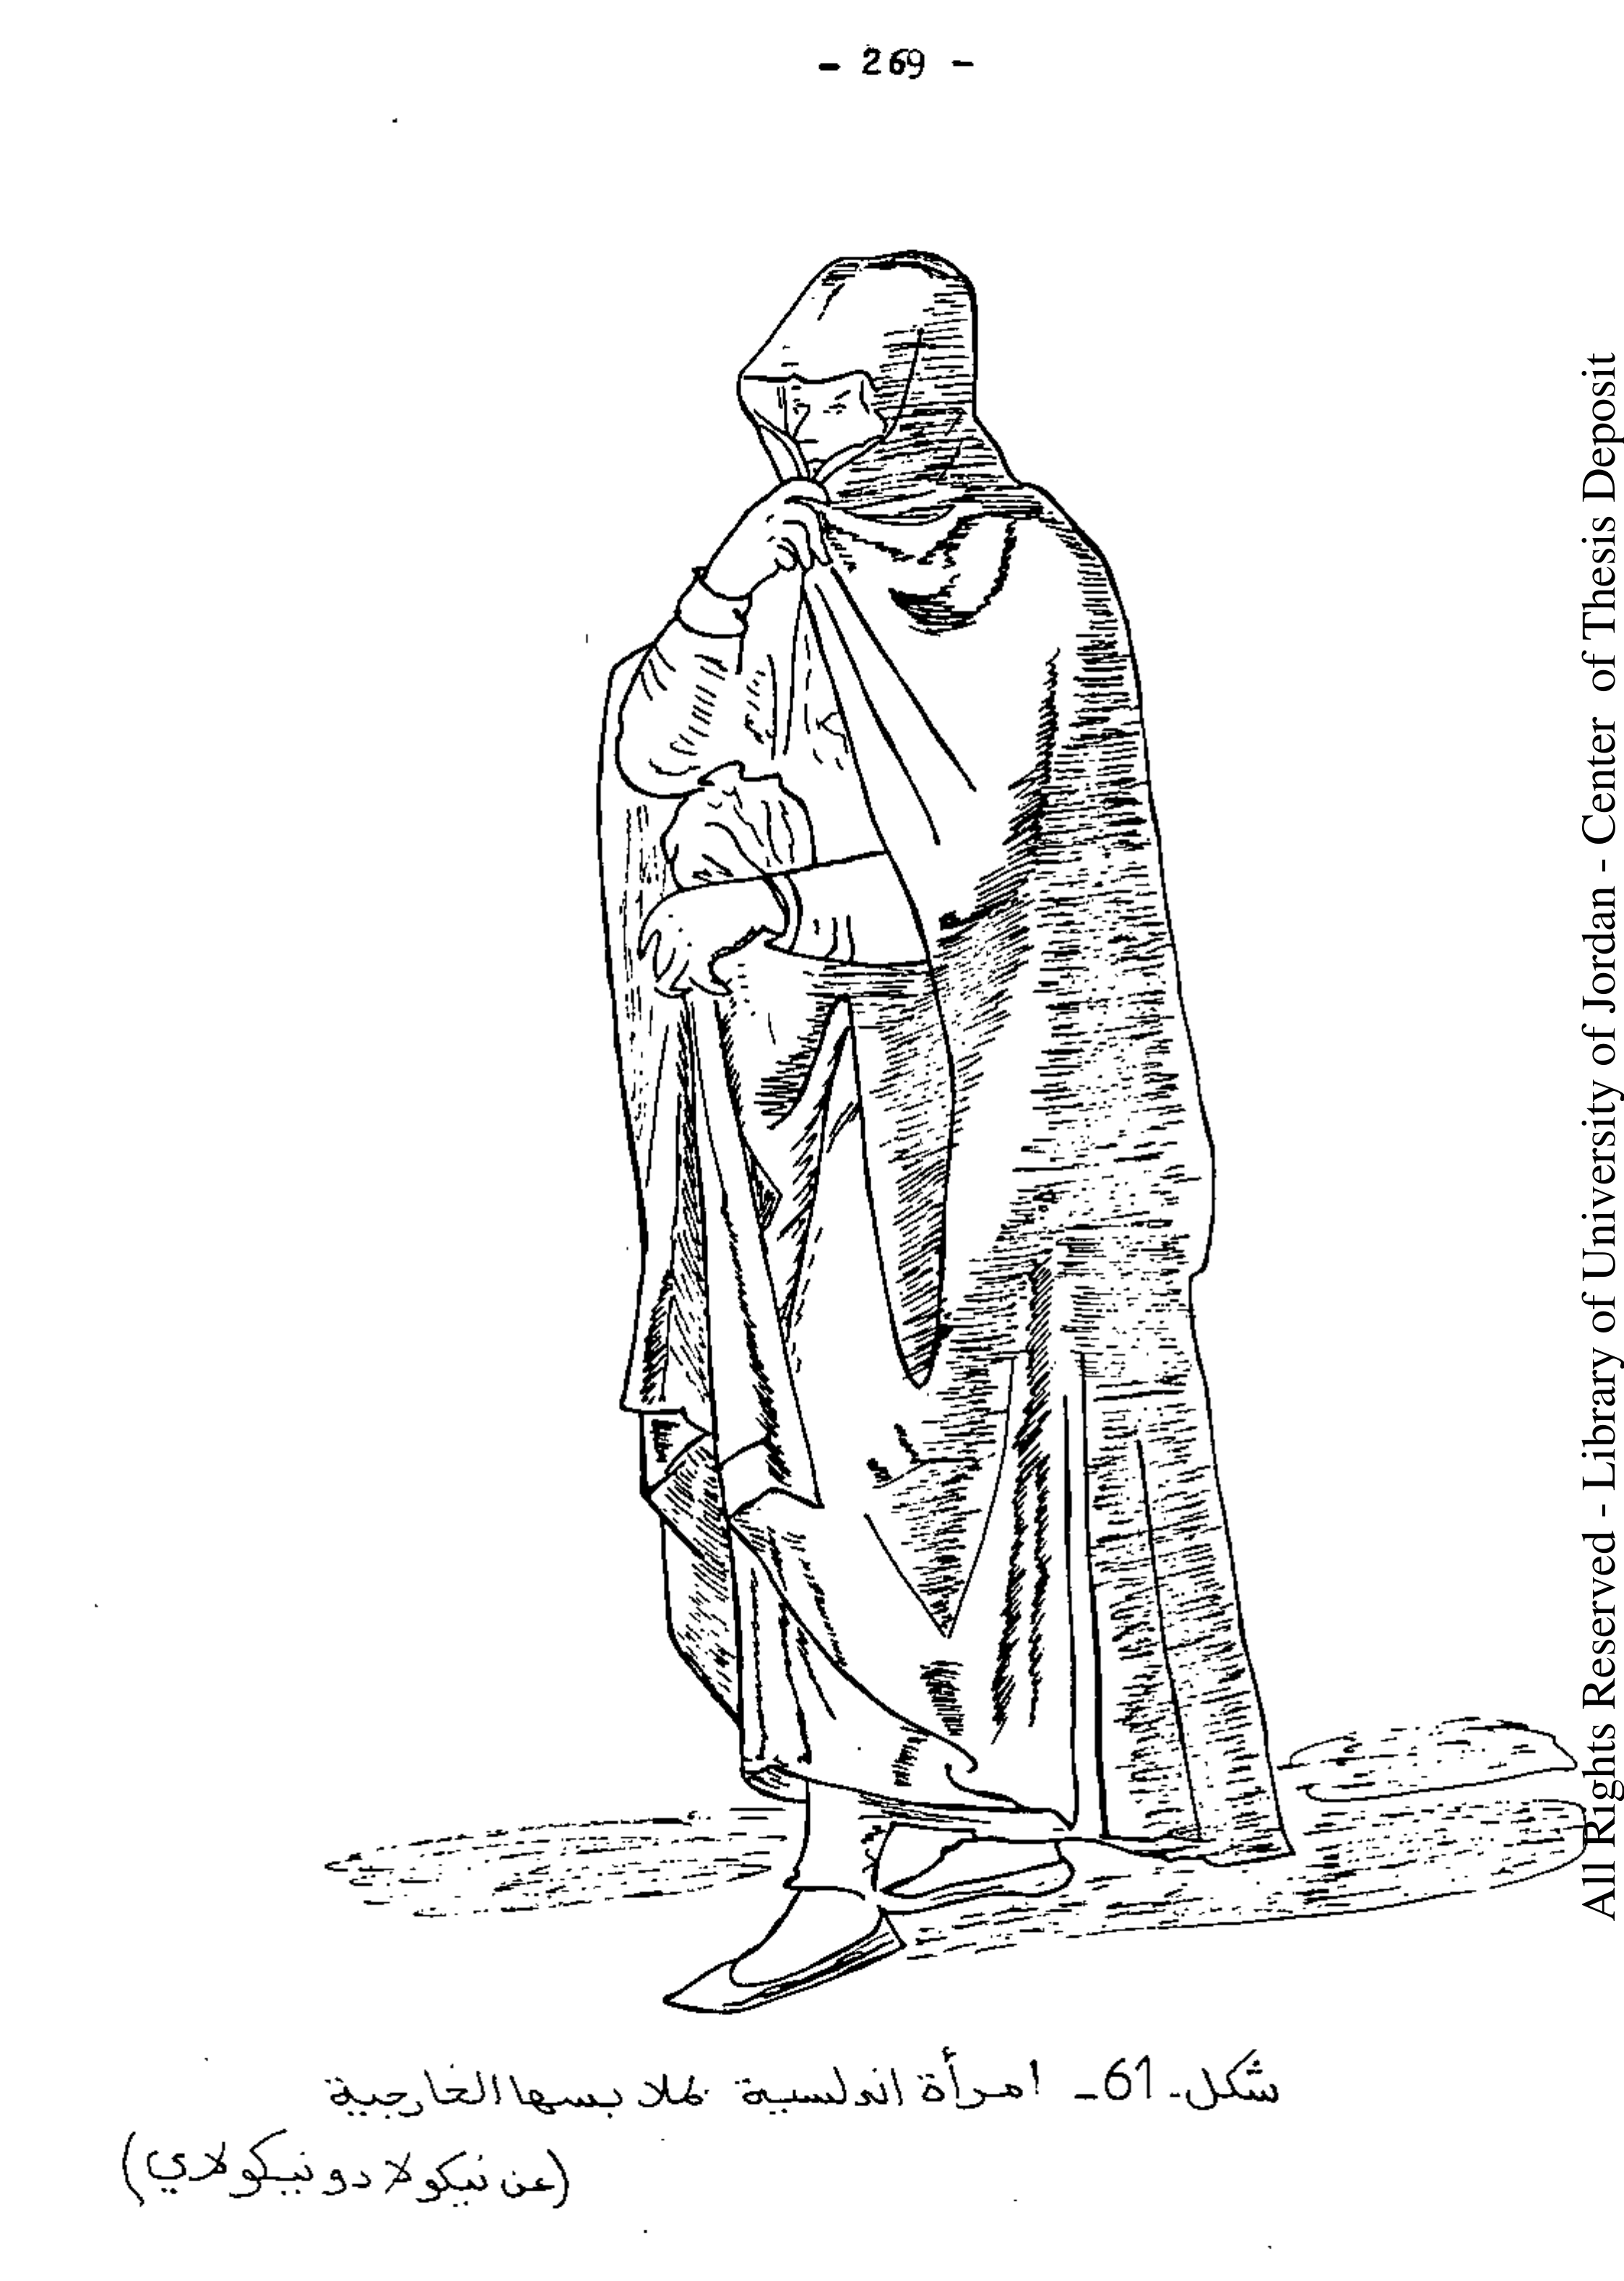 - 269 -
شكل - 61 - امرأة اندلسية بملابسها الخارجية
(عن نيكولا دو نيكولاي)
All Rights Reserved - Library of University of Jordan - Center of Thesis Deposit